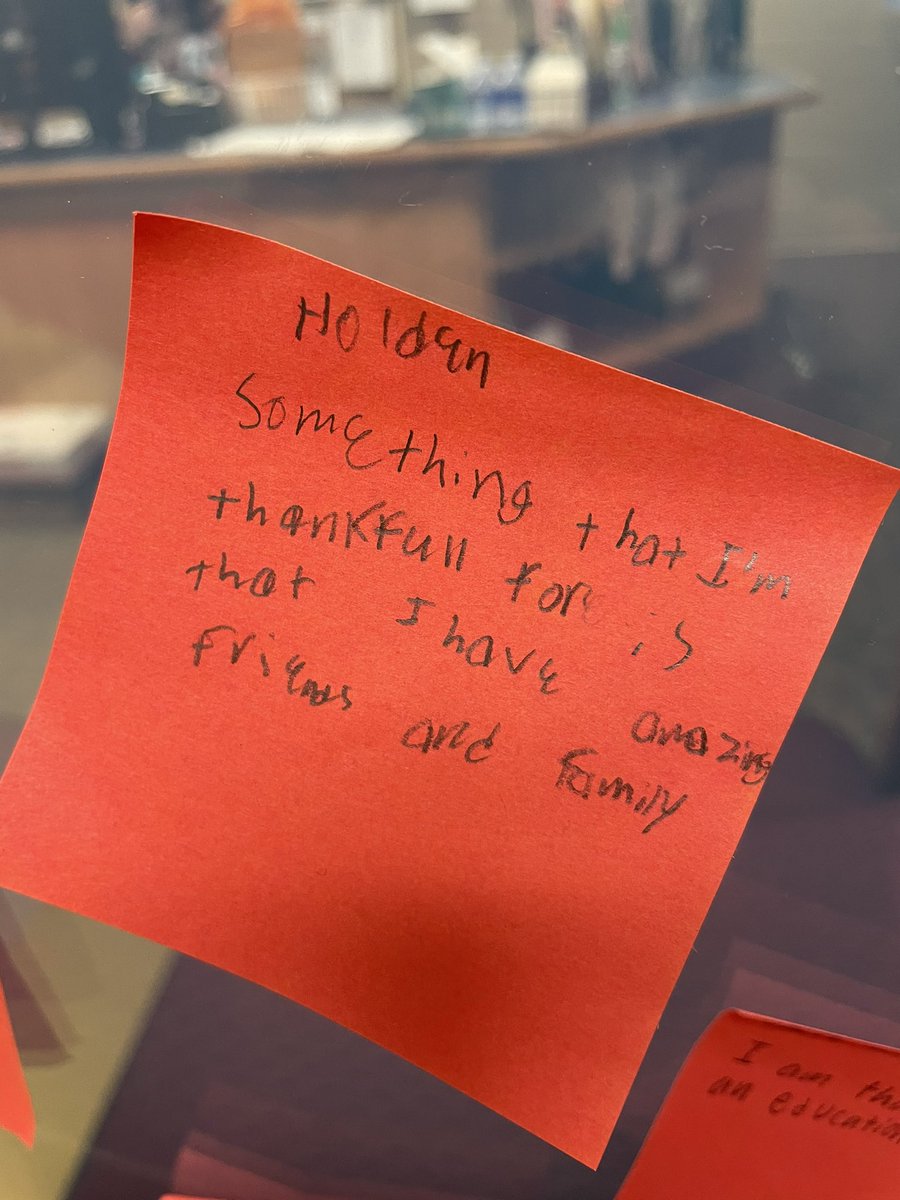 Holden
Something that I'm
thankfull for is
that I have amazing
friends and family
I am tha
an education